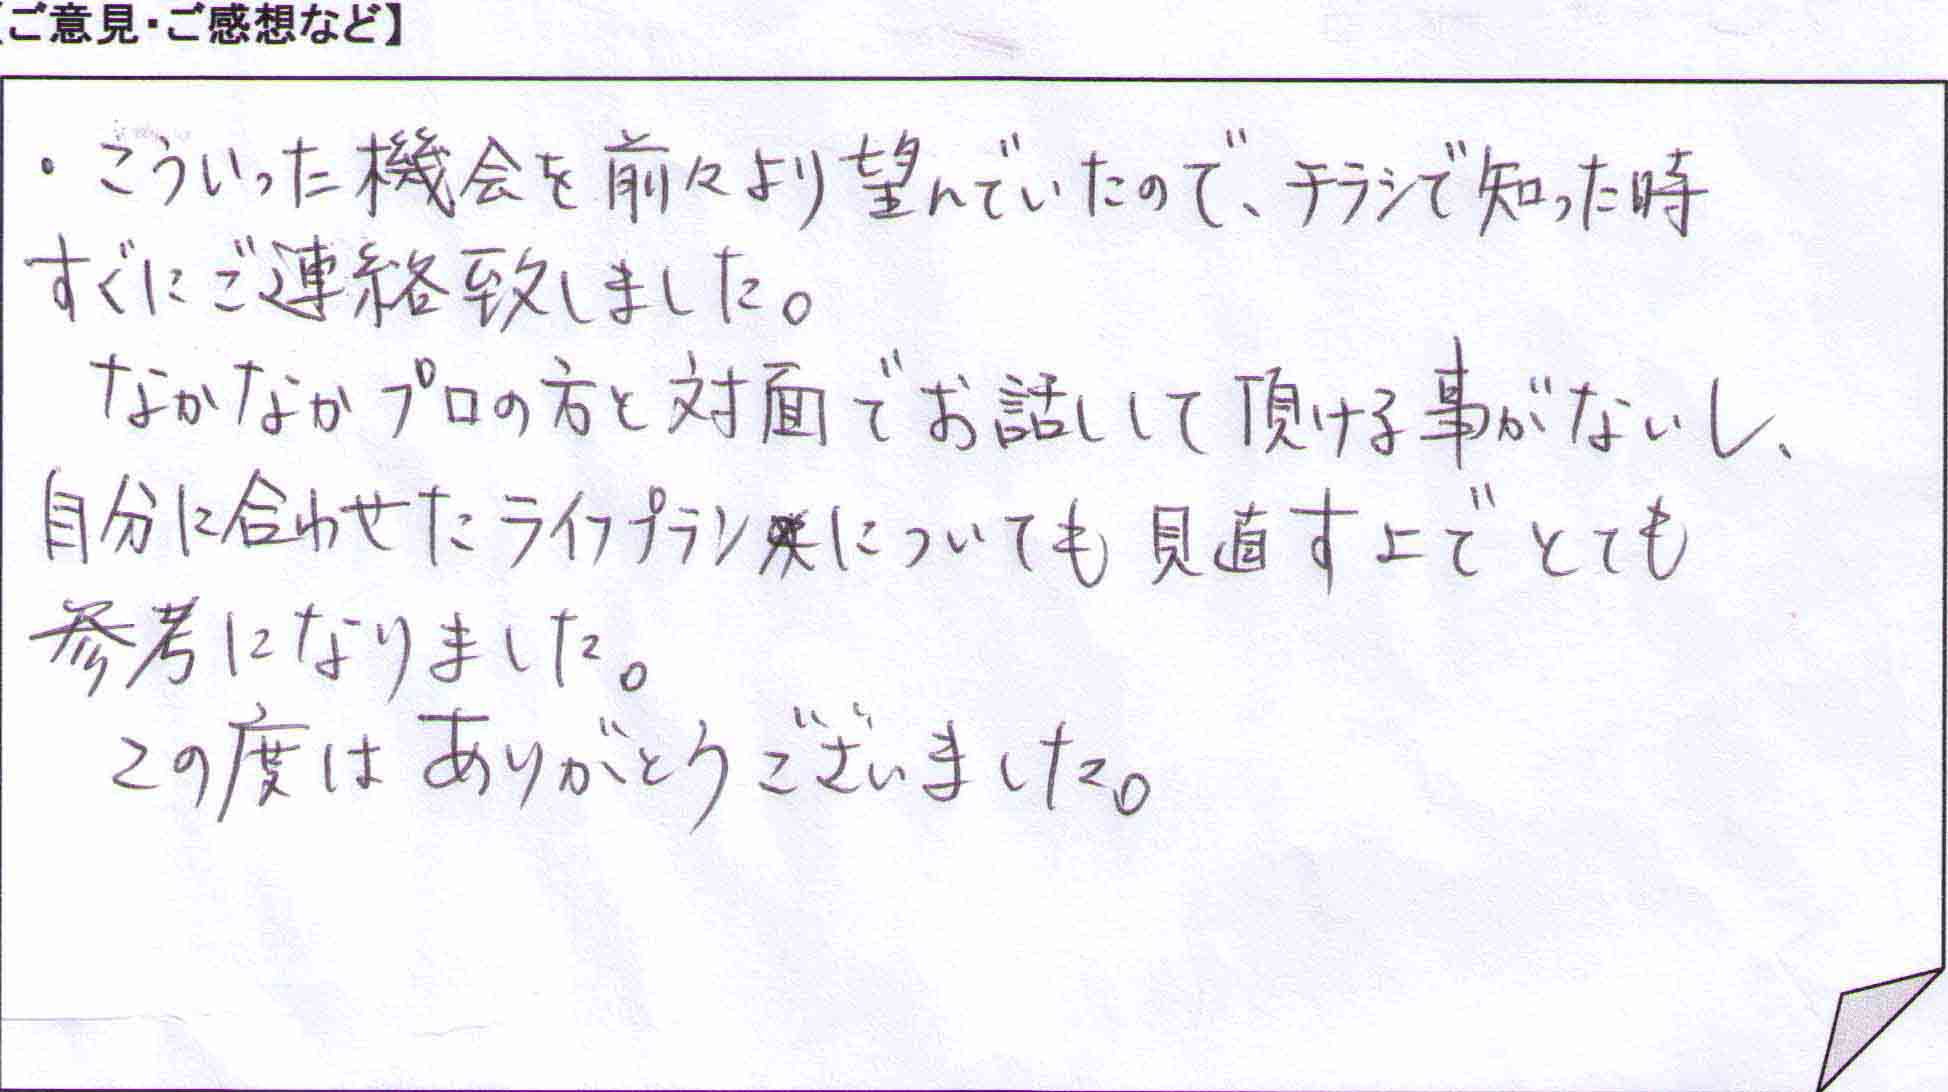 【ご意見・ご感想など】
・こういった機会を前々より望んでいたので、チラシで知った時
すぐにご連絡致しました。
なかなかプロの方と対面でお話しして頂ける事がないし、
自分に合わせたライフプランについても見直す上でとても
参考になりました。
この度はありがとうございました。